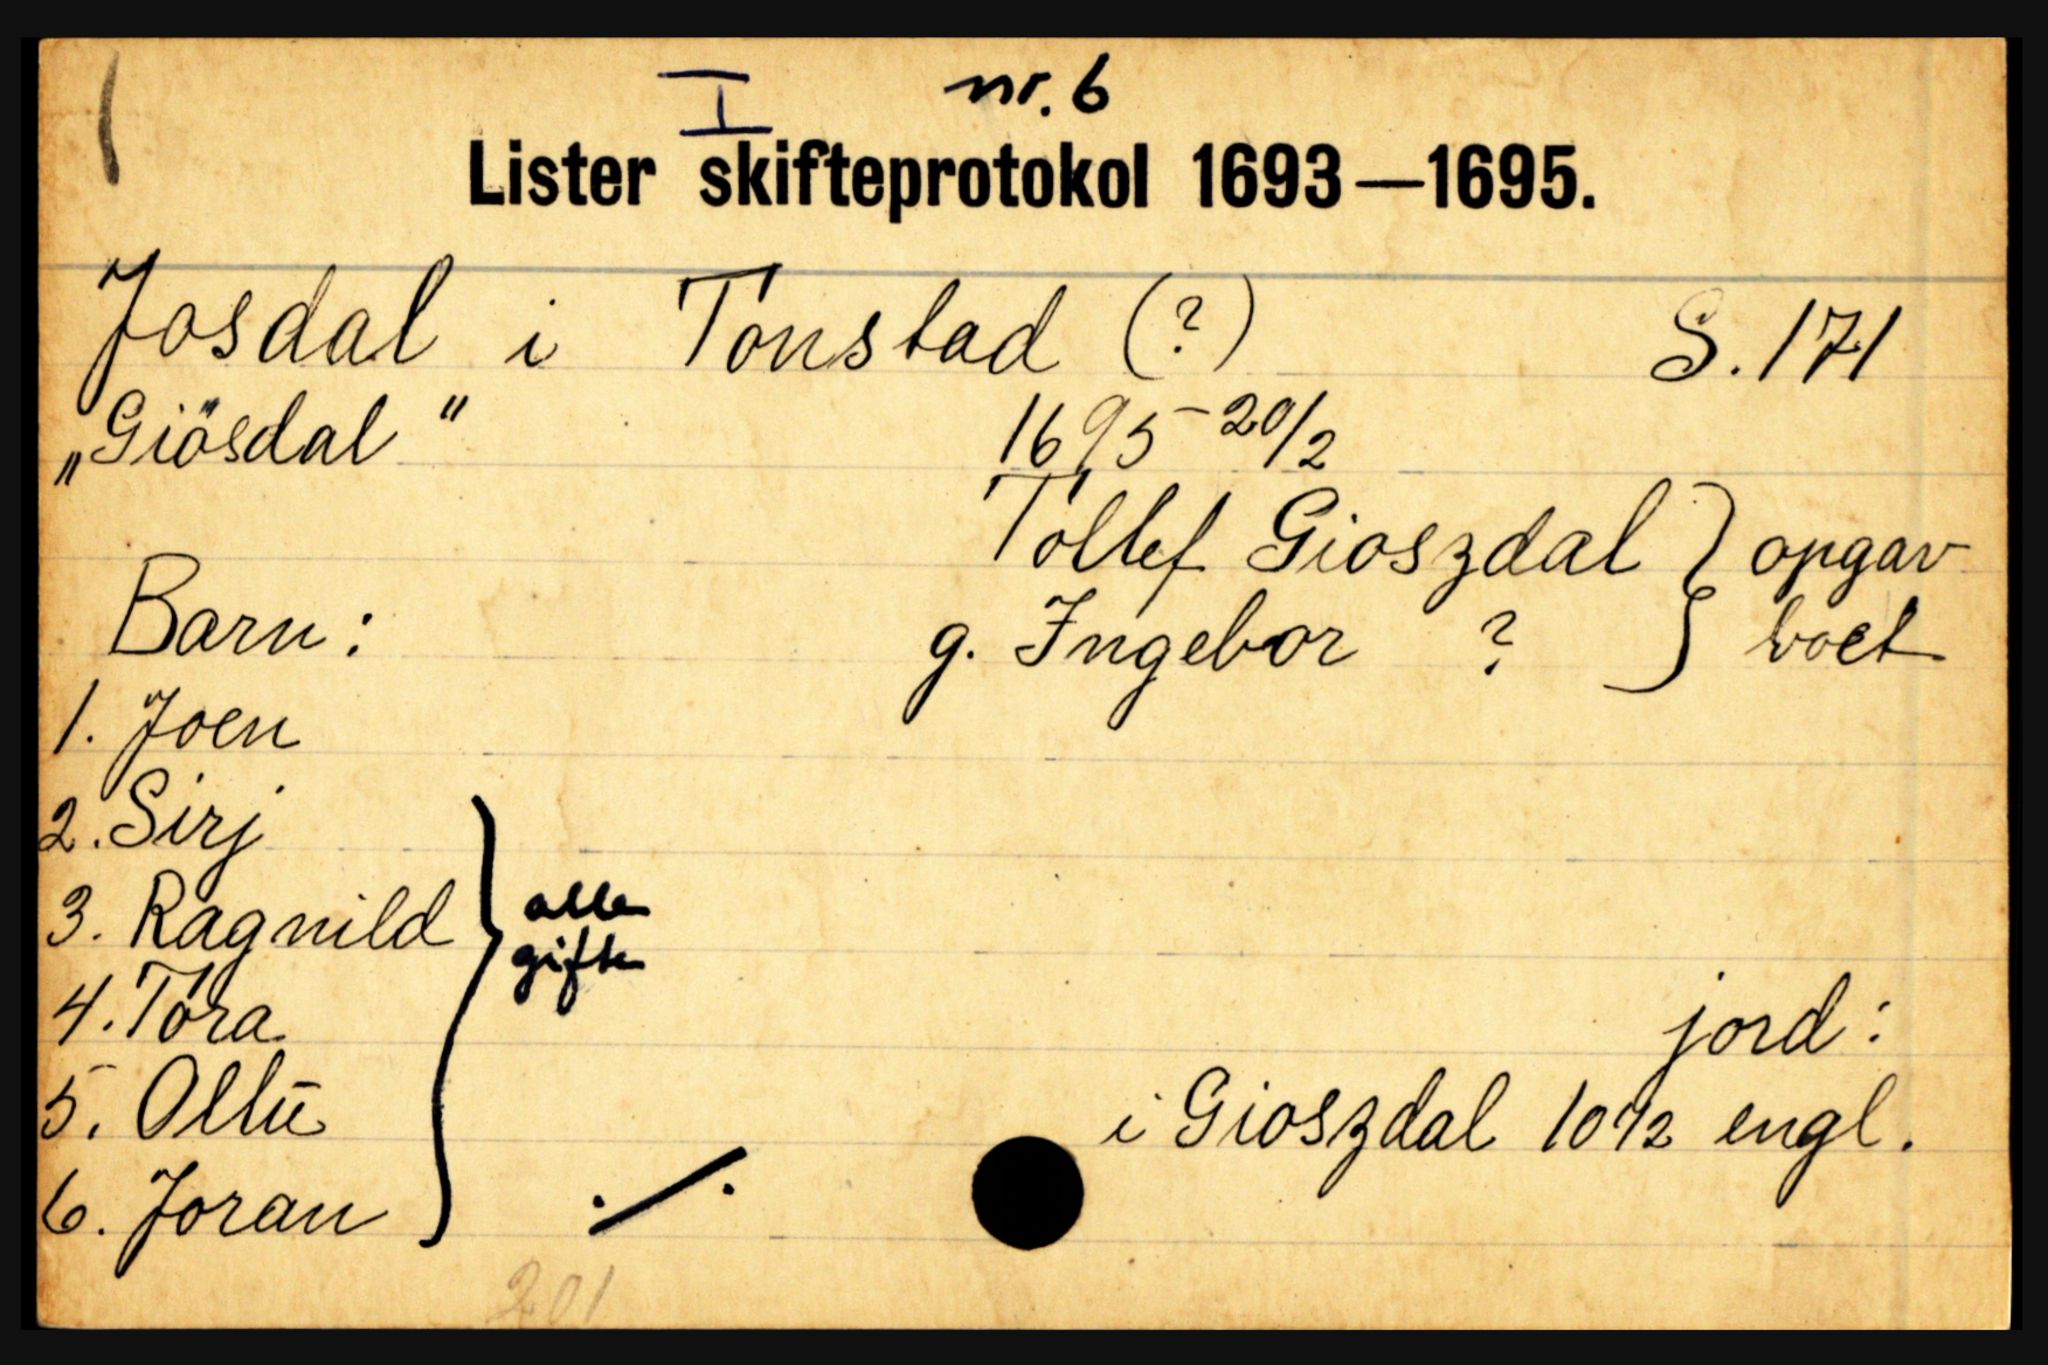 I nr. 6
Lister skifteprotokol 1693—1695.
Josdal i Tonstad (?) S. 171
„Giösdal" 1695 - 20/2
Tollef Gioszdal } opgav
Barn: g. Ingebor ? } boet
1. Joen
2. Sirj
3. Ragnild } alle
gifte
4. Tora jord:
5. Ollū i Gioszdal 10 1/2 engl.
6. Joran ./.
201